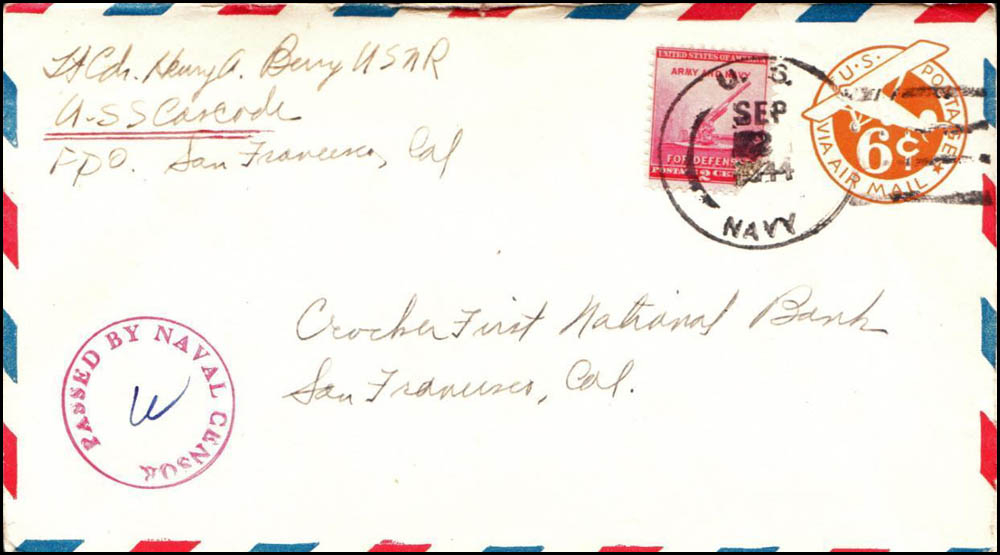 Lt Cdr. Henry A. Berry USNR
U.S.S Cascade
F.P.O. San Francisco, Cal
UNITED STATES OF AMERICA
ARMY AND NAVY
FOR DEFENSE
POSTAGE 2 CENTS
U. S.
SEP
2
1944
NAVY
U.S. POSTAGE
6¢
VIA AIR MAIL
Crocker First National Bank
San Francisco, Cal.
PASSED BY NAVAL CENSOR
W